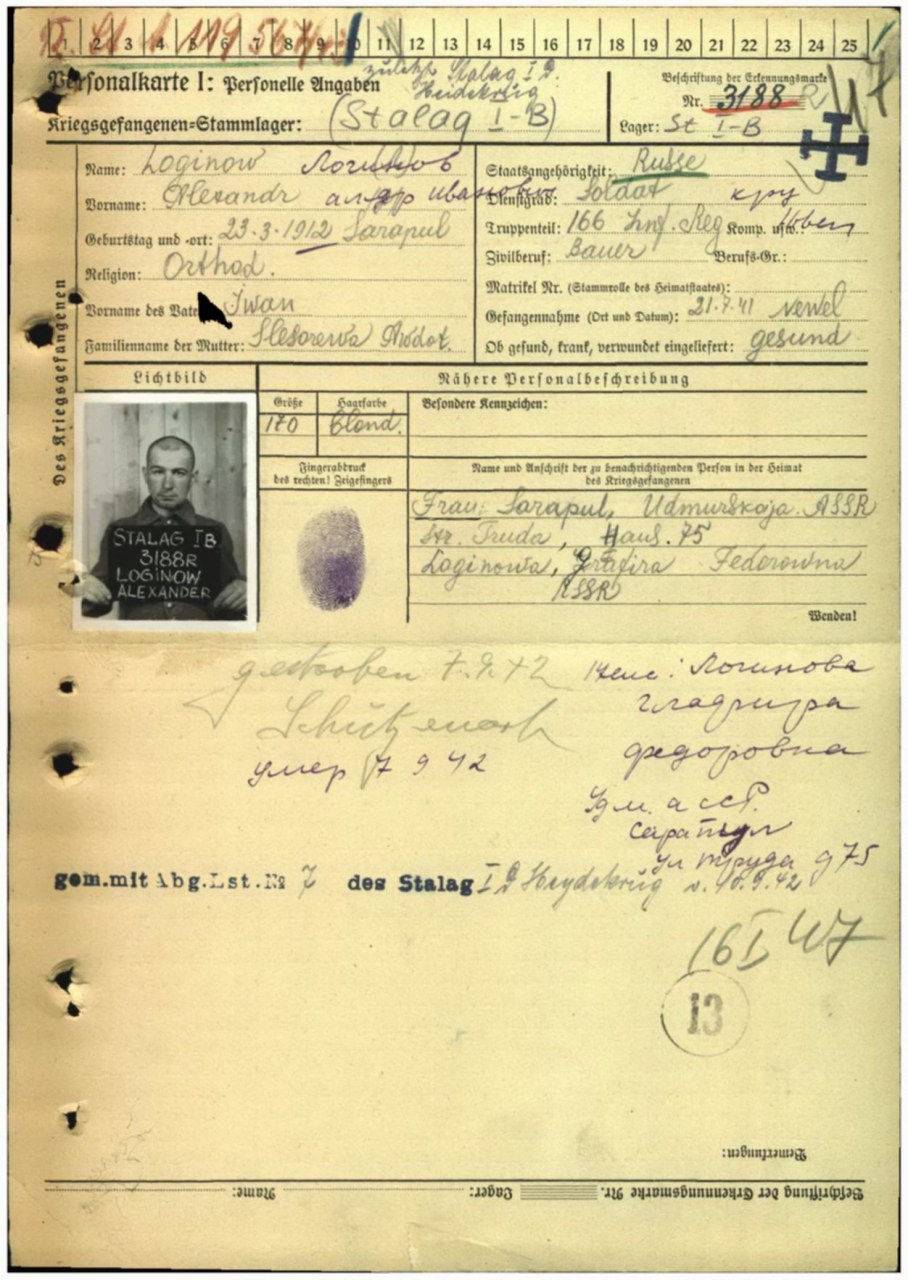 1 2 3 4 5 6 7 8 9 10 11 12 13 14 15 16 17 18 19 20 21 22 23 24 25
Personalkarte I: Personelle Angaben
zuletzt Stalag I D
Heidekrug
Kriegsgefangenen=Stammlager: (Stalag I-B)
Beschriftung der Erkennungsmarke
Nr. 3188
Lager: St I-B
47
Des Kriegsgefangenen
Name: Loginow Логинов
Vorname: Alexandr Иванович
Geburtstag und -ort: 23.3.1912 Sarapul
Religion: Orthod.
Vorname des Vaters: Iwan
Familienname der Mutter:
Staatsangehörigkeit: Russe
Dienstgrad: Soldat кр
Truppenteil: 166 Inf. Reg Komp. usw.:
Zivilberuf: Bauer Berufs-Gr.:
Matrikel Nr. (Stammrolle des Heimatstaates):
Gefangennahme (Ort und Datum): 21.7.41 Newel
Ob gesund, krank, verwundet eingeliefert: gesund
Lichtbild
Nähere Personalbeschreibung
Größe Haarfarbe Besondere Kennzeichen:
170 blond.
Fingerabdruck
des rechten! Zeigefingers
Name und Anschrift der zu benachrichtigenden Person in der Heimat
des Kriegsgefangenen
Frau: Sarapul, Udmurskaja ASSR
Str. Truda, Haus. 75
Loginowa, Federowna
ASSR
Wenden!
STALAG IB
3188R
LOGINOW
ALEXANDER
gestorben 7.9.42
умер 7 9 42
жена: Логинова
Глафира
Федоровна
Удм. АССР.
Сарапул
ул Труда д 75
gem.mit Abg.Lst.№ 7 des Stalag I D Heydekrug v. 10.9.42
16 I 47
13
Bemerkungen:
Beschriftung der Erkennungsmarke Nr. Lager: Name: